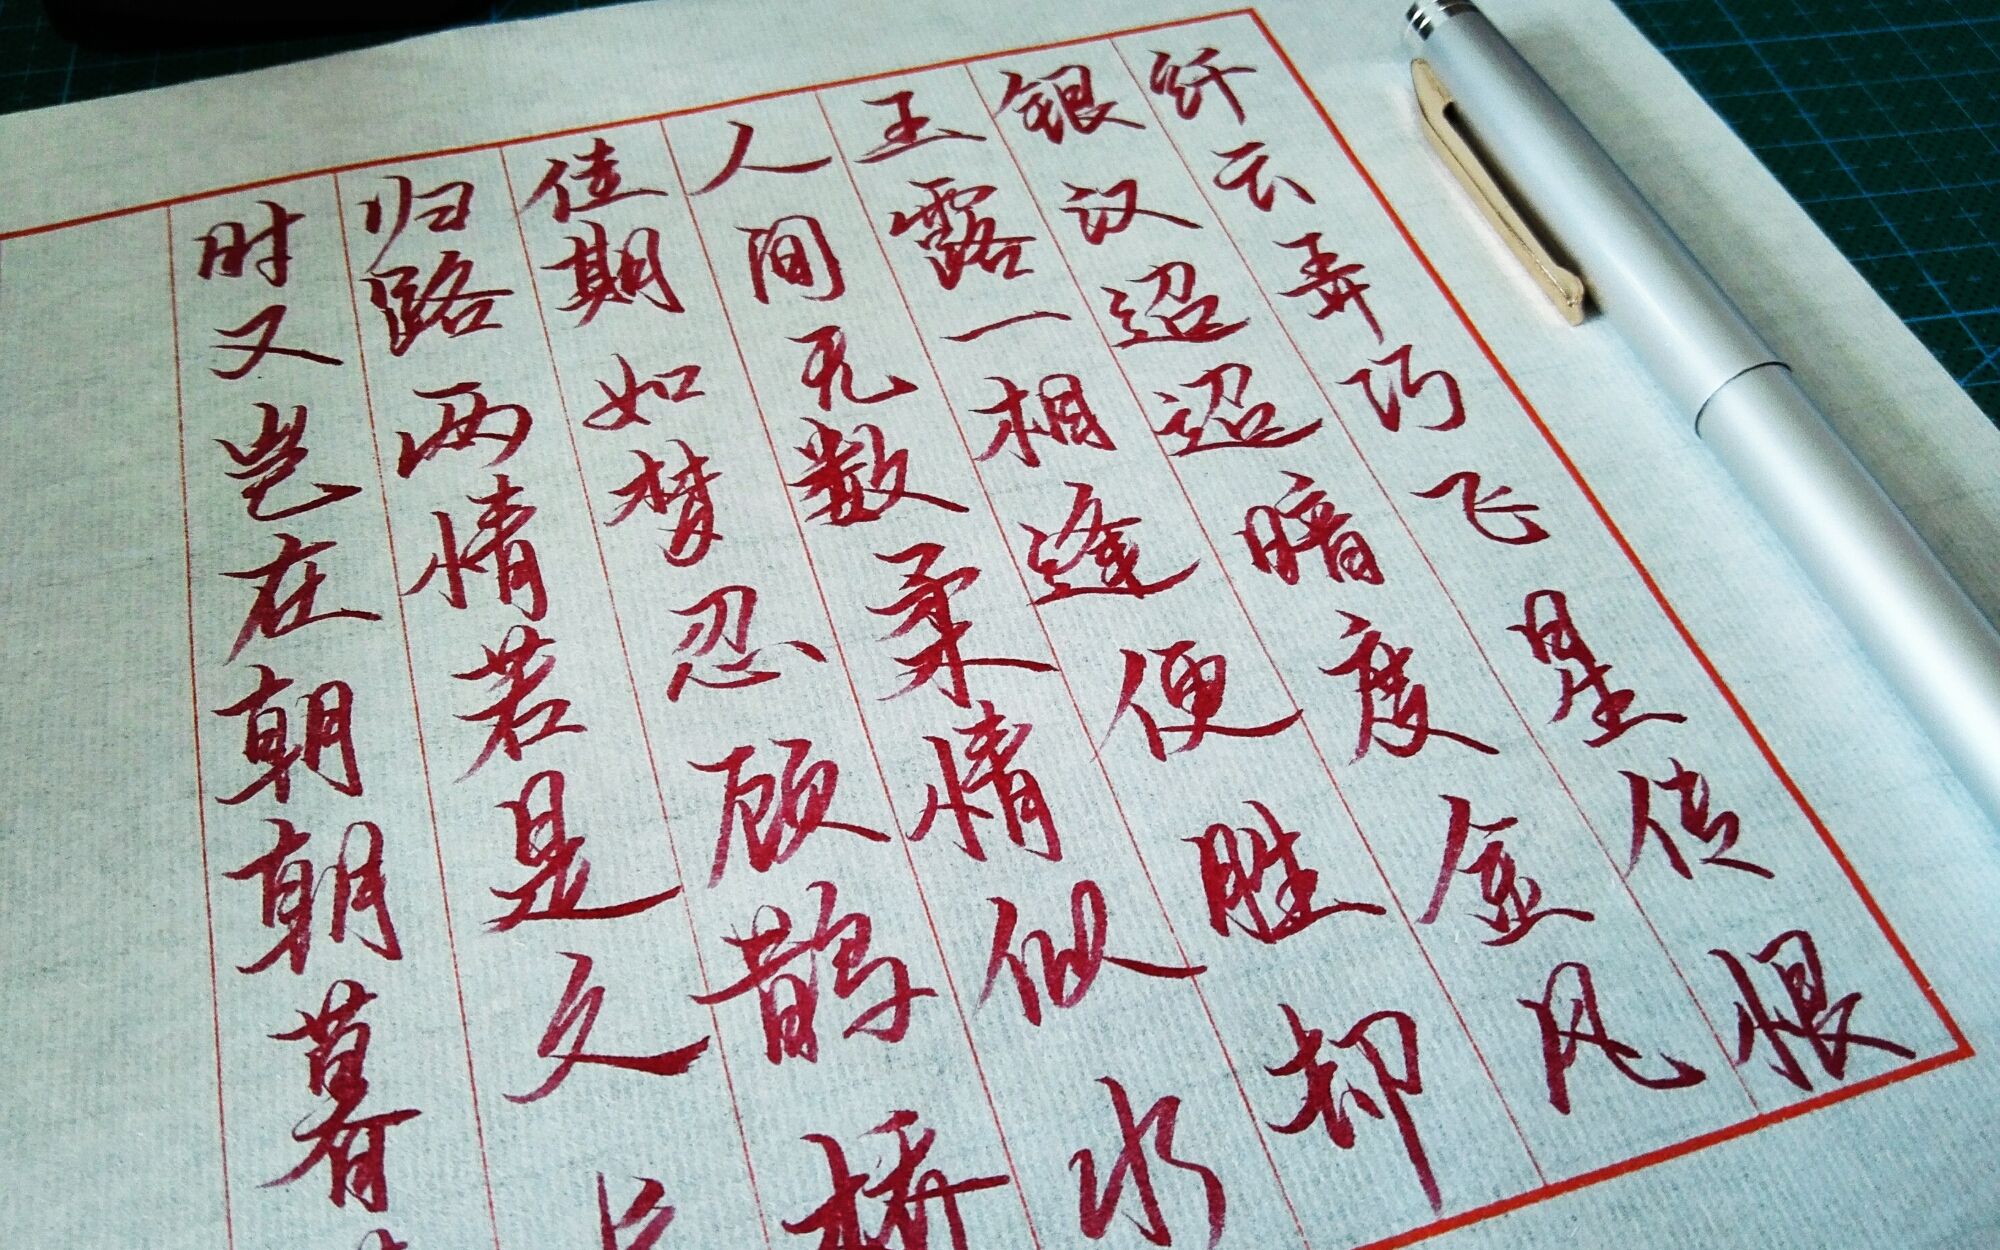 纤云弄巧飞星传恨
银汉迢迢暗度金风
玉露一相逢便胜却
人间无数柔情似水
佳期如梦忍顾鹊桥
归路两情若是久
时又岂在朝朝暮